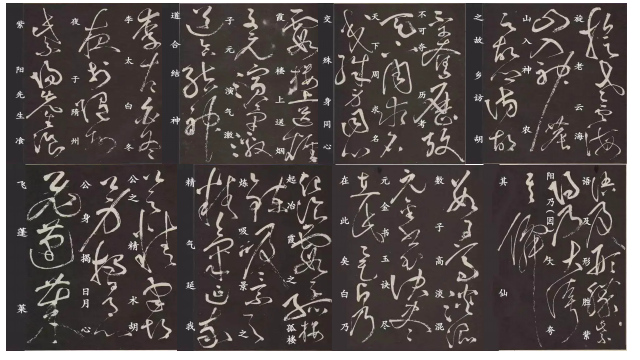 李太白冬
夜于隋州
紫阳先生飡
霞楼上送烟
子元演气激
道合结神
不可夺历考
天下周求名
交殊身同心
旋老云海
山入神农
之故乡访胡
公之精术胡
公身揭日月心
飞蓬莱
起冶霞之孤楼
炼吸景之
精气延我
数子高淡混
元金书玉诀尽
在此矣白乃
语及形胜紫
阳乃(因)矢夸
其仙